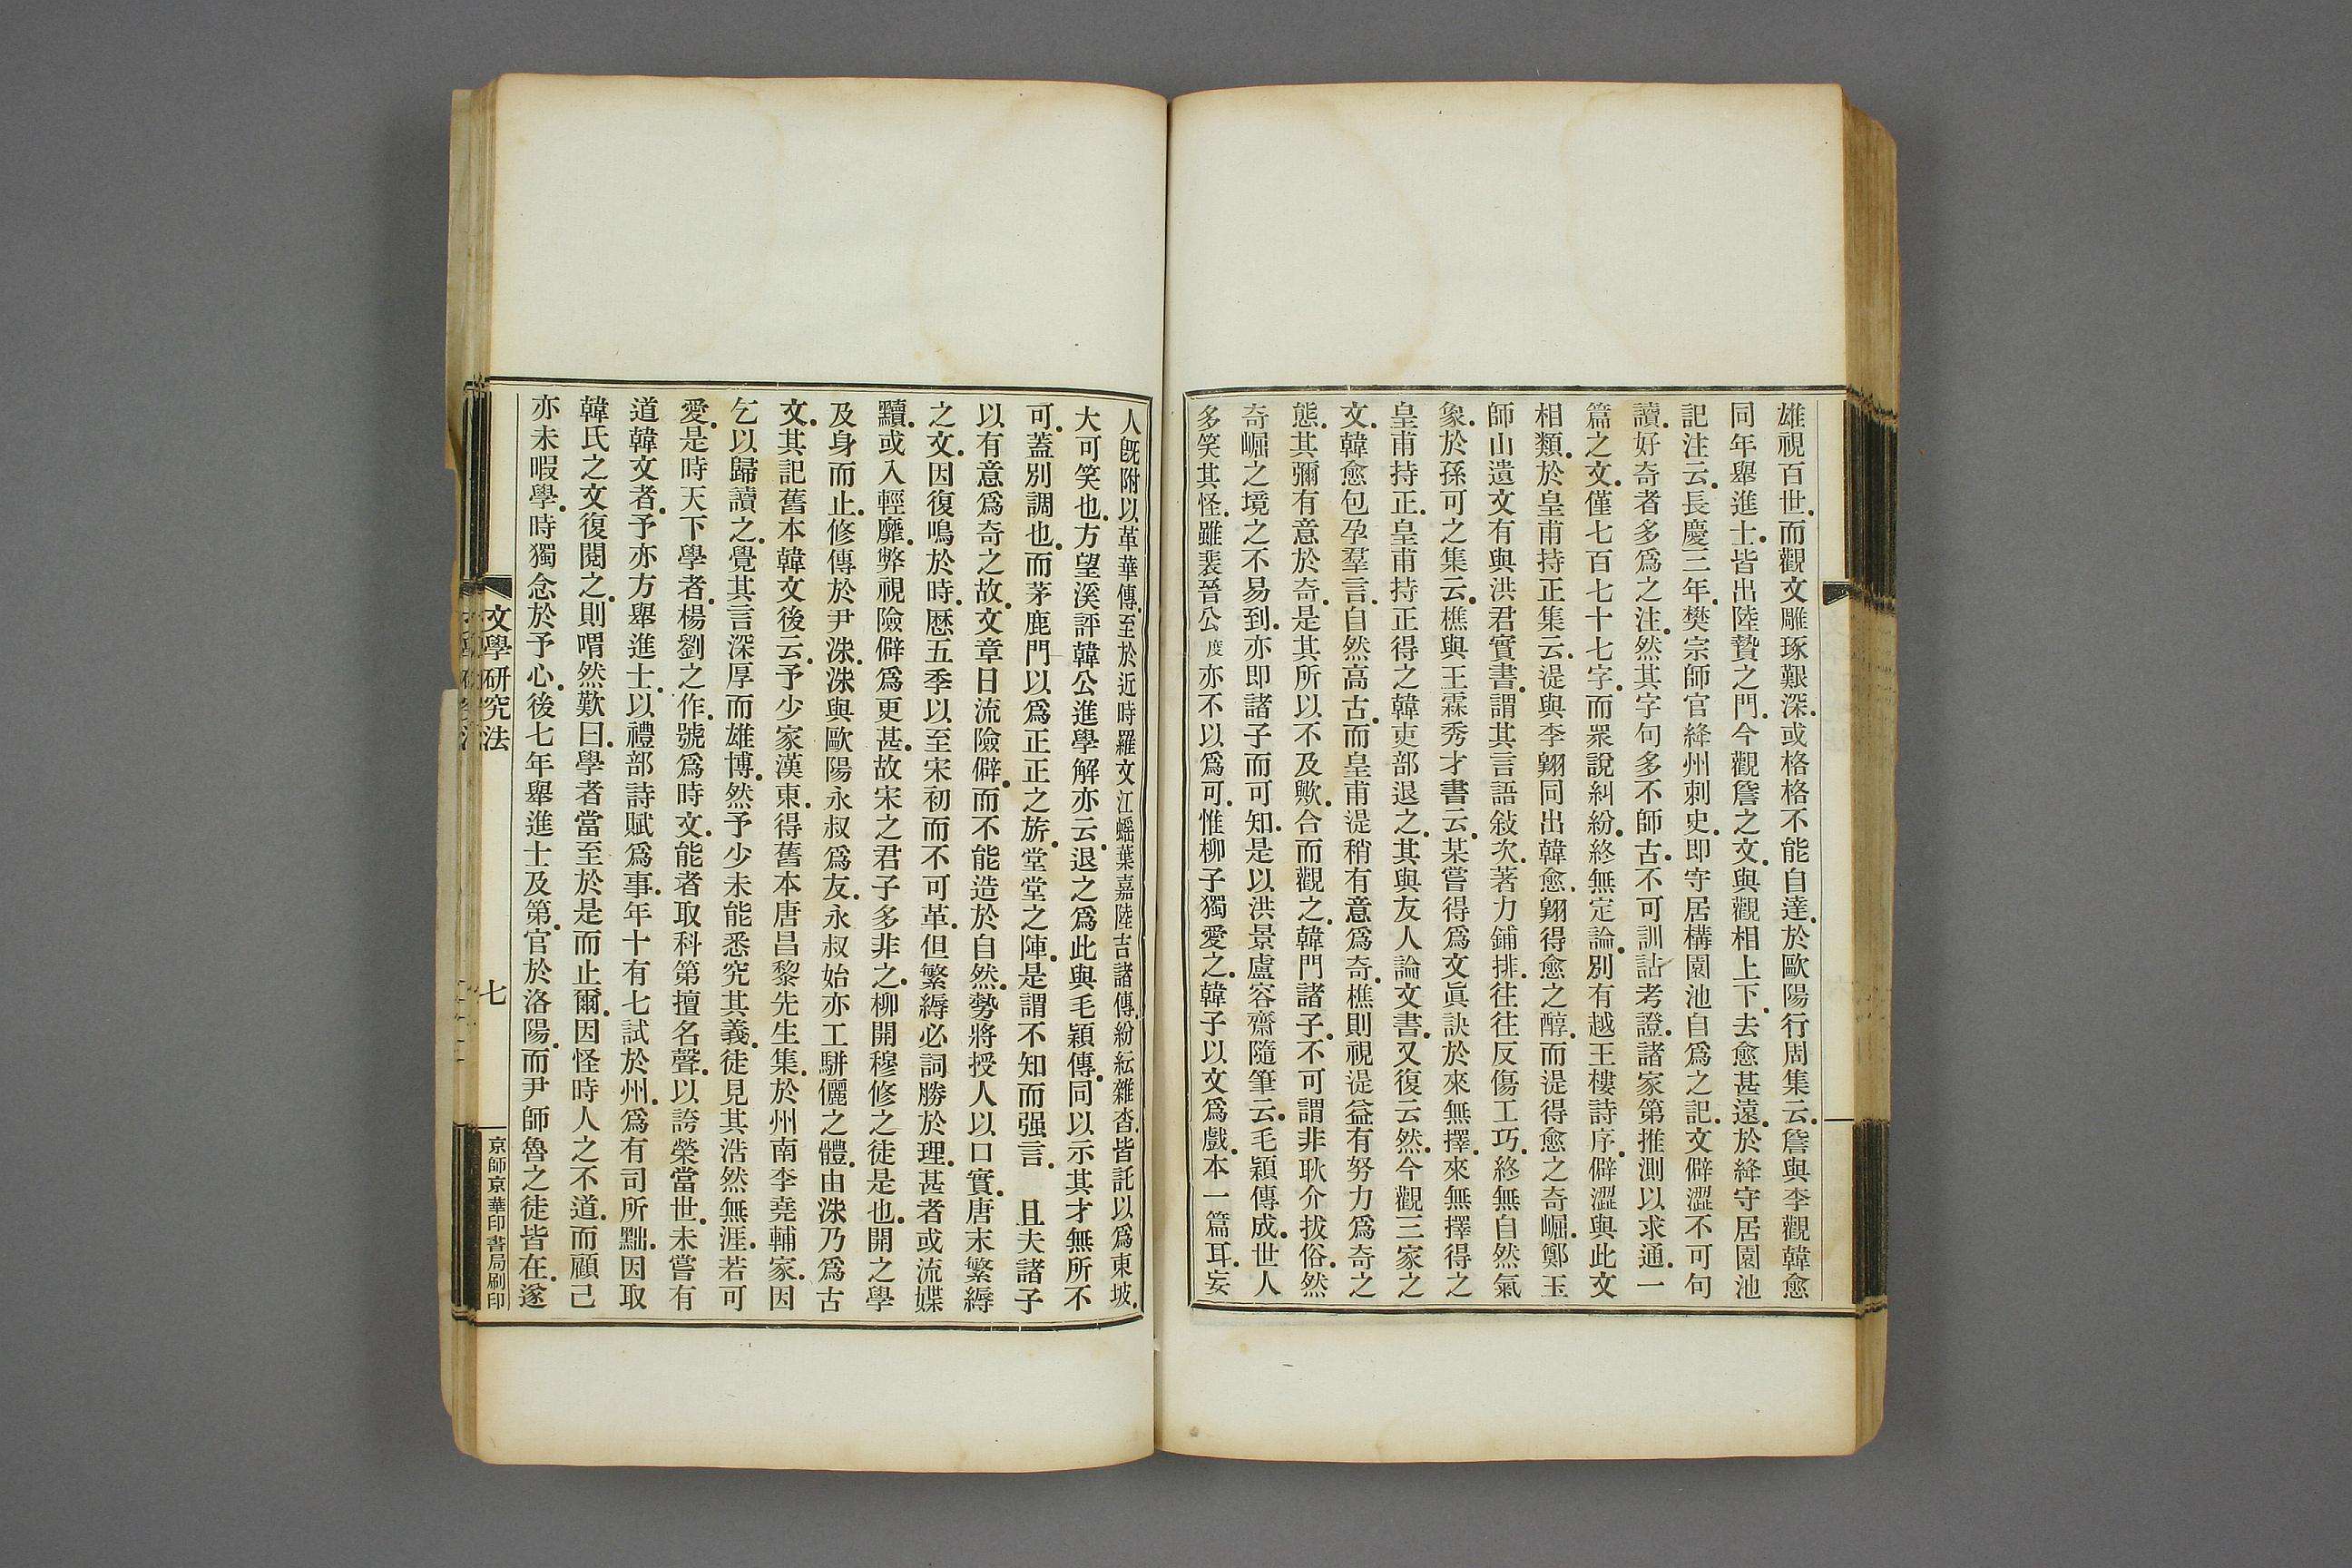 雄視百世.而觀文雕琢艱深.或格格不能自達.於歐陽行周集云.詹與李觀韓愈
同年舉進士.皆出陸贄之門.今觀詹之文.與觀相上下.去愈甚遠.於絳守居園池
記注云.長慶三年.樊宗師官絳州刺史.即守居構園池自爲之記.文僻澀不可句
讀.好奇者多爲之注.然其字句多不師古.不可訓詁考證.諸家第推測以求通.一
篇之文.僅七百七十七字.而衆說糾紛.終無定論.別有越王樓詩序.僻澀與此文
相類.於皇甫持正集云.湜與李翶同出韓愈.翶得愈之醇.而湜得愈之奇崛.鄭玉
師山遺文有與洪君實書.謂其言語敍次.著力鋪排.往往反傷工巧.終無自然氣
象.於孫可之集云.樵與王霖秀才書云.某嘗得爲文眞訣於來無擇.來無擇得之
皇甫持正.皇甫持正得之韓吏部退之.其與友人論文書.又復云然.今觀三家之
文.韓愈包孕羣言.自然高古.而皇甫湜稍有意爲奇.樵則視湜益有努力爲奇之
態.其彌有意於奇.是其所以不及歟.合而觀之.韓門諸子.不可謂非耿介拔俗.然
奇崛之境之不易到.亦即諸子而可知.是以洪景盧容齋隨筆云.毛穎傳成.世人
多笑其怪.雖裴晉公度亦不以爲可.惟柳子獨愛之.韓子以文爲戲.本一篇耳.妄
人旣附以革華傳.至於近時羅文江蝠葉嘉陸吉諸傳.紛紜雜沓.皆託以爲東坡.
大可笑也.方望溪評韓公進學解亦云.退之爲此與毛穎傳.同以示其才無所不
可.蓋別調也.而茅鹿門以爲正正之旂.堂堂之陣.是謂不知而强言. 且夫諸子
以有意爲奇之故.文章日流險僻.而不能造於自然.勢將授人以口實.唐末繁縟
之文.因復鳴於時.歷五季以至宋初而不可革.但繁縟必詞勝於理.甚者或流媟
黷.或入輕靡.弊視險僻爲更甚.故宋之君子多非之.柳開穆修之徒是也.開之學
及身而止.修傳於尹洙.洙與歐陽永叔爲友.永叔始亦工騈儷之體.由洙乃爲古
文.其記舊本韓文後云.予少家漢東.得舊本唐昌黎先生集.於州南李堯輔家.因
乞以歸讀之.覺其言深厚而雄博.然予少未能悉究其義.徒見其浩然無涯.若可
愛.是時天下學者.楊劉之作.號爲時文.能者取科第擅名聲.以誇榮當世.未嘗有
道韓文者.予亦方舉進士.以禮部詩賦爲事.年十有七試於州.爲有司所黜.因取
韓氏之文復閱之.則喟然歎曰.學者當至於是而止爾.因怪時人之不道.而顧己
亦未暇學.時獨念於予心.後七年舉進士及第.官於洛陽.而尹師魯之徒皆在.遂
文學研究法
七
京師京華印書局刷印